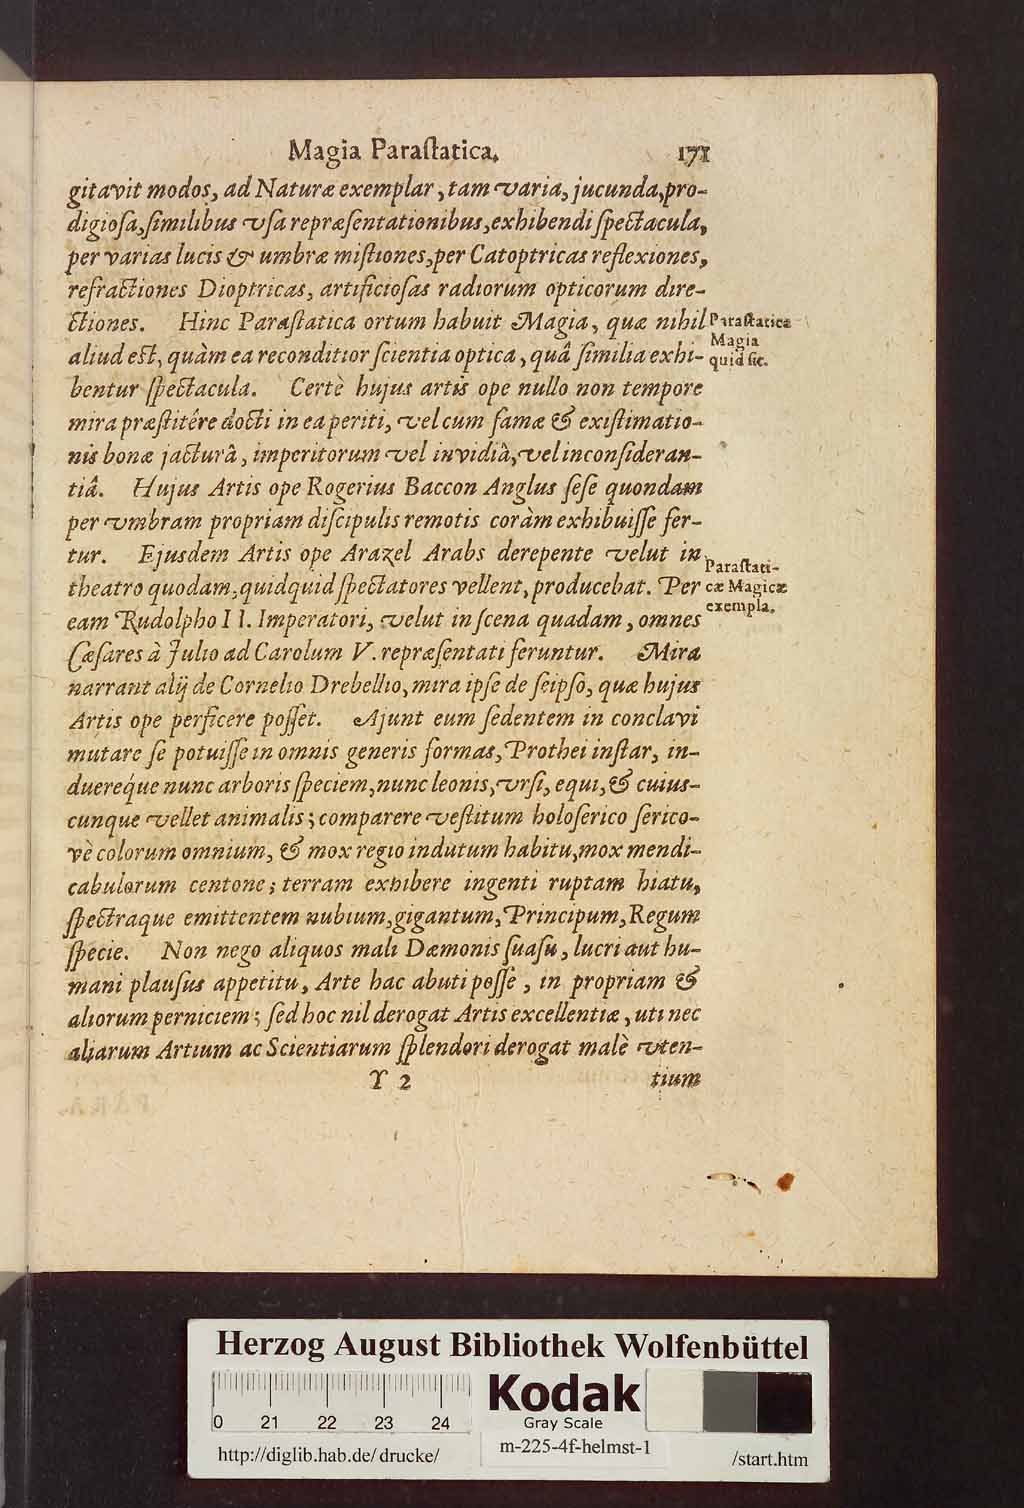 Magia Paraſtatica. 171
gitavit modos, ad Naturæ exemplar, tam varia, jucunda, pro-
digioſa, ſimilibus vſa repræſentationibus, exhibendi ſpectacula,
per varias lucis & umbræ miſtiones, per Catoptricas reflexiones,
refractiones Dioptricas, artificioſas radiorum opticorum dire-
ctiones. Hinc Paraſtatica ortum habuit Magia, quæ nihil
aliud eſt, quàm ea reconditior ſcientia optica, quâ ſimilia exhi-
bentur ſpectacula. Certè hujus artis ope nullo non tempore
mira præſtitére docti in ea periti, vel cum famæ & exiſtimatio-
nis bonæ jacturâ, imperitorum vel invidiâ, vel inconſideran-
tiâ. Hujus Artis ope Rogerius Baccon Anglus ſeſe quondam
per vmbram propriam diſcipulis remotis coràm exhibuiſſe fer-
tur. Ejusdem Artis ope Arazel Arabs derepente velut in
theatro quodam, quidquid ſpectatores vellent, producebat. Per
eam Rudolpho II. Imperatori, velut in ſcena quadam, omnes
Cæſares à Julio ad Carolum V. repræſentati feruntur. Mira
narrant alij de Cornelio Drebellio, mira ipſe de ſeipſo, quæ hujus
Artis ope perficere poſſet. Ajunt eum ſedentem in conclavi
mutare ſe potuiſſe in omnis generis formas, Prothei inſtar, in-
duereq́ue nunc arboris ſpeciem, nunc leonis, vrſi, equi, & cuius-
cunque vellet animalis; comparere veſtitum holoſerico ſerico-
vè colorum omnium, & mox regio indutum habitu, mox mendi-
cabulorum centone; terram exhibere ingenti ruptam hiatu,
ſpectraque emittentem nubium, gigantum, Principum, Regum
ſpecie. Non nego aliquos mali Dæmonis ſuaſu, lucri aut hu-
mani plauſus appetitu, Arte hac abuti poſſe, in propriam &
aliorum perniciem; ſed hoc nil derogat Artis excellentiæ, uti nec
aliarum Artium ac Scientiarum ſplendori derogat malè vten-
Y 2 tium
Paraſtatica
Magia
quid ſit.
Paraſtati-
cæ Magicæ
exempla.
Herzog August Bibliothek Wolfenbüttel
0 21 22 23 24
Kodak
Gray Scale
m-225-4f-helmst-1
http://diglib.hab.de/drucke/ /start.htm